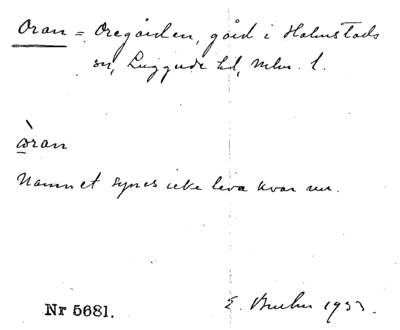 Oran = Oregården, gård i Halmstads
sn, Luggude hd, Mlm. l.
òran
Namnet synes icke leva kvar nu.
E. Bruhn 1933.
Nr 5681.